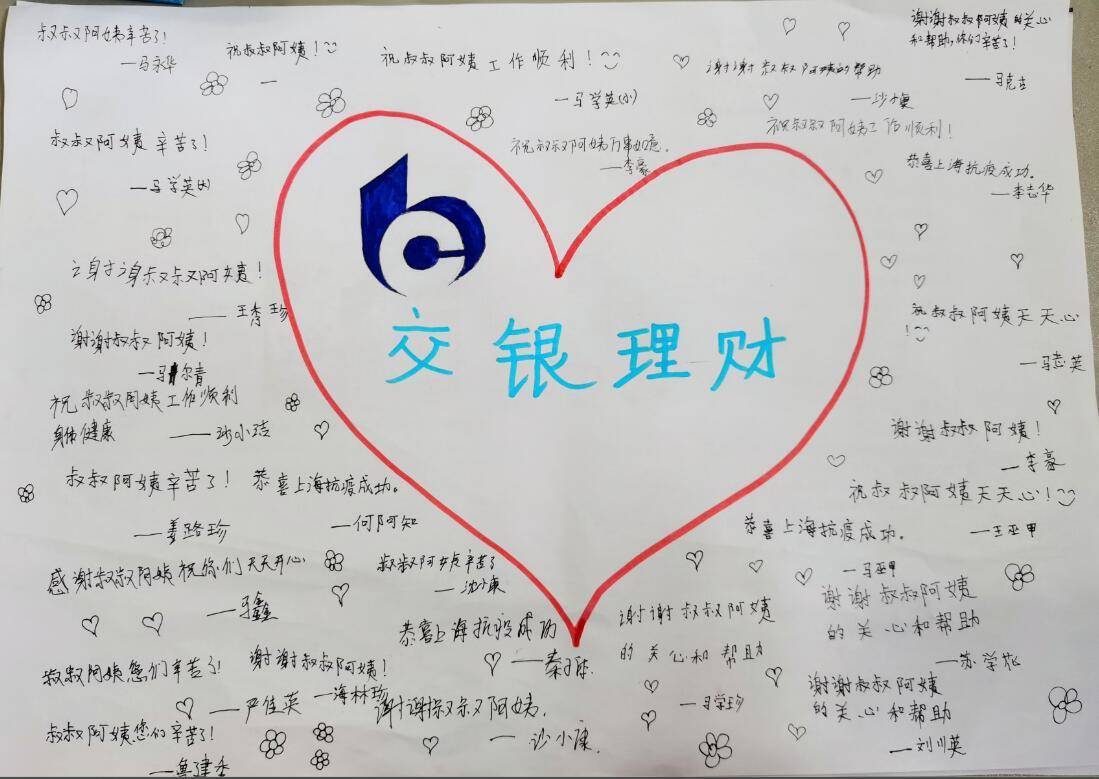 叔叔阿姨辛苦了!
—马永华
祝叔叔阿姨!
—
祝叔叔阿姨工作顺利!
—马学英(小)
谢谢叔叔阿姨的关心
和帮助,你们辛苦了!
—马克吉
谢谢叔叔阿姨的帮助
—沙小更
叔叔阿姨辛苦了!
—马学英
祝叔叔阿姨万事如意.
—李豪
祝叔叔阿姨工作顺利!
恭喜上海抗疫成功。
—李志华
谢谢叔叔阿姨!
——王秀珍
祝叔叔阿姨天天心
!
—马志英
谢谢叔叔阿姨!
—马尔青
交银理财
祝叔叔阿姨工作顺利
身体健康 ——沙小洁
谢谢叔叔阿姨!
—李豪
叔叔阿姨辛苦了!
——姜路珍
恭喜上海抗疫成功。
—何阿知
祝叔叔阿姨天天心!
—王亚甲
恭喜上海抗疫成功。
—马亚甲
感谢叔叔阿姨祝你们天天开心
—马鑫
叔叔阿姨辛苦了
—沈小康
谢谢叔叔阿姨
的关心和帮助
—苏学
恭喜上海抗疫成功
—秦
谢谢叔叔阿姨
的关心和帮助
—马学珍
叔叔阿姨您们辛苦了!
—严佳英
谢谢叔叔阿姨!
—海林珍
谢谢叔叔阿姨.
—沙小康.
谢谢叔叔阿姨
的关心和帮助
—刘川英
叔叔阿姨您们辛苦了!
—鲁建香